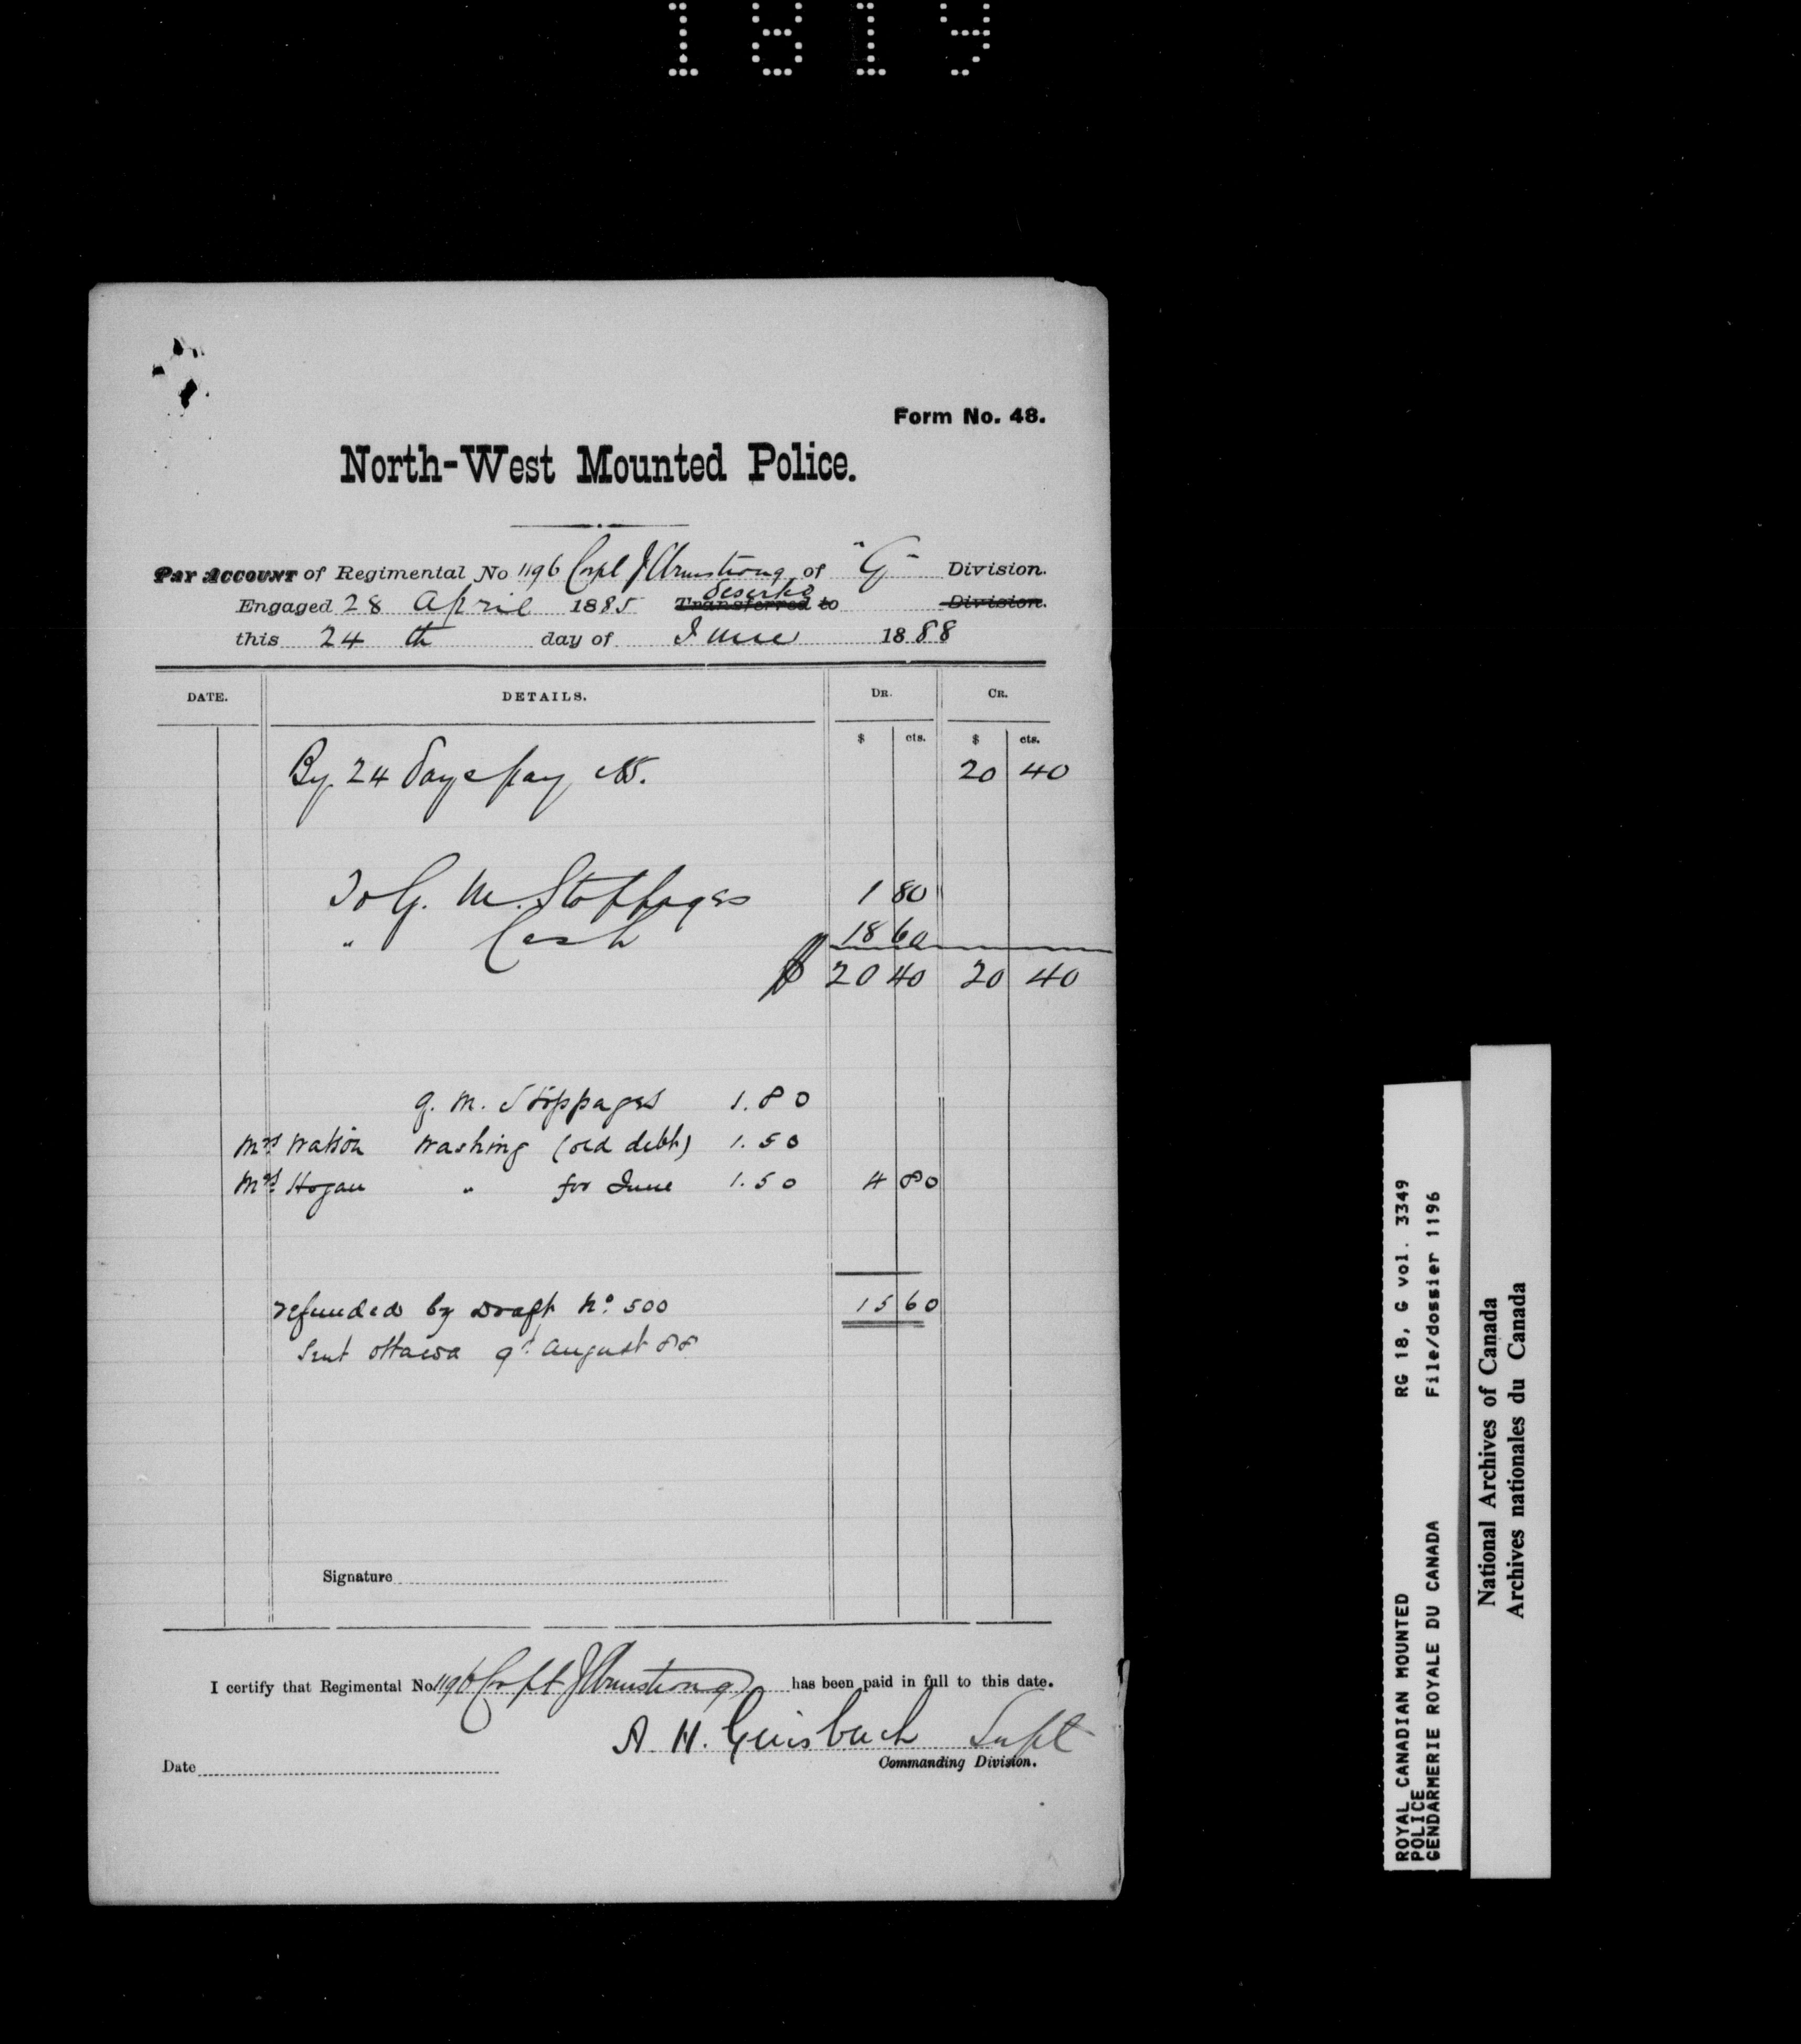 1819
Form No. 48.
North-West Mounted Police.
Pay Account of Regimental No 1196 Corpl J Armstrong of "G" Division.
deserted
Engaged 28 April 1885 Transferred to Division.
this 24 th day of June 1888
DATE. DETAILS. DR. CR.
$ cts. $ cts.
By 24 days pay 20 40
To G. M. Stoppages 1 80
" Cash 18 60
$ 20 40 20 40
G. M. Stoppages 1.80
Mrs Watson Washing (old debt) 1.50
Mrs. Hogan " for June 1.50 4 80
15 60
refunded by Draft No. 500
Sent Ottawa 9t August 88
Signature
I certify that Regimental No. 1196 Corpl J Armstrong has been paid in full to this date.
A. H. Griesbach Supt
Commanding Division.
Date
ROYAL CANADIAN MOUNTED RG 18, G vol. 3349
POLICE
GENDARMERIE ROYALE DU CANADA File/dossier 1196
National Archives of Canada
Archives nationales du Canada